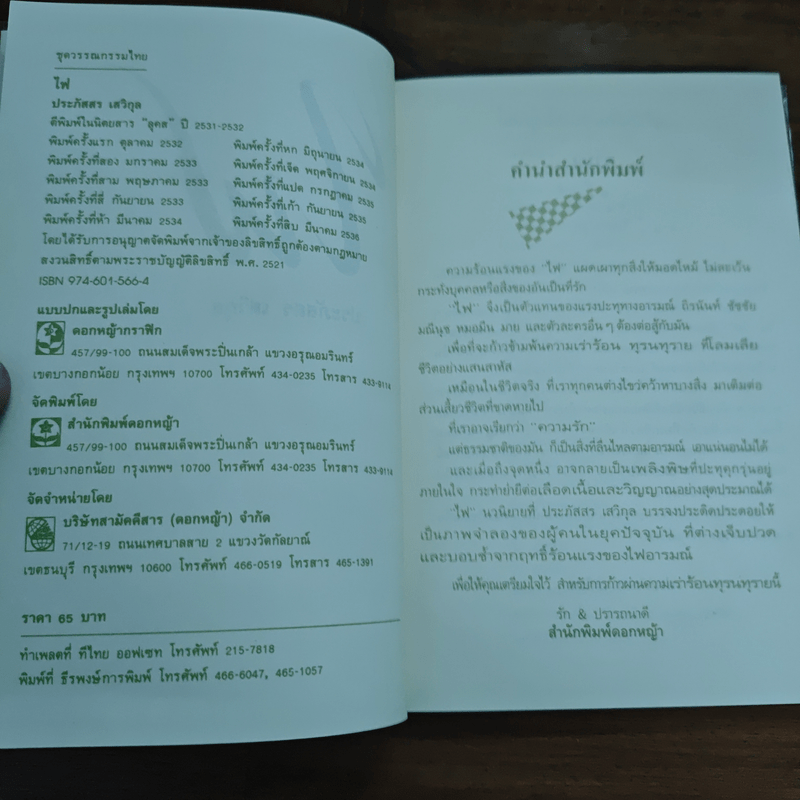 ชุดวรรณกรรมไทย
ไฟ
ประภัสสร เสวิกุล
ตีพิมพ์ในนิตยสาร "ลุคส" ปี 2531-2532
พิมพ์ครั้งแรก ตุลาคม 2532
พิมพ์ครั้งที่สอง มกราคม 2533
พิมพ์ครั้งที่สาม พฤษภาคม 2533
พิมพ์ครั้งที่สี่ กันยายน 2533
พิมพ์ครั้งที่ห้า มีนาคม 2534
พิมพ์ครั้งที่หก มิถุนายน 2534
พิมพ์ครั้งที่เจ็ด พฤศจิกายน 2534
พิมพ์ครั้งที่แปด กรกฎาคม 2535
พิมพ์ครั้งที่เก้า กันยายน 2535
พิมพ์ครั้งที่สิบ มีนาคม 2536
โดยได้รับการอนุญาตจัดพิมพ์จากเจ้าของลิขสิทธิ์ถูกต้องตามกฎหมาย
สงวนสิทธิ์ตามพระราชบัญญัติลิขสิทธิ์ พ.ศ. 2521
ISBN 974-601-566-4
แบบปกและรูปเล่มโดย
ดอกหญ้ากราฟิก
457/99-100 ถนนสมเด็จพระปิ่นเกล้า แขวงอรุณอมรินทร์
เขตบางกอกน้อย กรุงเทพฯ 10700 โทรศัพท์ 434-0235 โทรสาร 433-9114
จัดพิมพ์โดย
สำนักพิมพ์ดอกหญ้า
457/99-100 ถนนสมเด็จพระปิ่นเกล้า แขวงอรุณอมรินทร์
เขตบางกอกน้อย กรุงเทพฯ 10700 โทรศัพท์ 434-0235 โทรสาร 433-9114
จัดจำหน่ายโดย
บริษัทสามัคคีสาร (ดอกหญ้า) จำกัด
71/12-19 ถนนเทศบาลสาย 2 แขวงวัดกัลยาณ์
เขตธนบุรี กรุงเทพฯ 10600 โทรศัพท์ 466-0519 โทรสาร 465-1391
ราคา 65 บาท
ทำเพลตที่ ทีไทย ออฟเซท โทรศัพท์ 215-7818
พิมพ์ที่ ธีรพงษ์การพิมพ์ โทรศัพท์ 466-6047, 465-1057
คำนำสำนักพิมพ์
ความร้อนแรงของ "ไฟ" แผดเผาทุกสิ่งให้มอดไหม้ ไม่ละเว้น
กระทั่งบุคคลหรือสิ่งของอันเป็นที่รัก
"ไฟ" จึงเป็นตัวแทนของแรงปะทุทางอารมณ์ ถิรนันท์ ชัชชัย
มณีนุช หมอมีน มาย และตัวละครอื่นๆ ต้องต่อสู้กับมัน
เพื่อที่จะก้าวข้ามพ้นความเร่าร้อน ทุรนทุราย ที่โลมเลีย
ชีวิตอย่างแสนสาหัส
เหมือนในชีวิตจริง ที่เราทุกคนต่างไขว่คว้าหาบางสิ่ง มาเติมต่อ
ส่วนเสี้ยวชีวิตที่ขาดหายไป
ที่เราอาจเรียกว่า "ความรัก"
แต่ธรรมชาติของมัน ก็เป็นสิ่งที่ลื่นไหลตามอารมณ์ เอาแน่นอนไม่ได้
และเมื่อถึงจุดหนึ่ง อาจกลายเป็นเพลิงพิษที่ปะทุคุกรุ่นอยู่
ภายในใจ กระทำย่ำยีต่อเลือดเนื้อและวิญญาณอย่างสุดประมาณได้
"ไฟ" นวนิยายที่ ประภัสสร เสวิกุล บรรจงประดิดประดอยให้
เป็นภาพจำลองของผู้คนในยุคปัจจุบัน ที่ต่างเจ็บปวด
และบอบช้ำจากฤทธิ์ร้อนแรงของไฟอารมณ์
เพื่อให้คุณเตรียมใจไว้ สำหรับการก้าวผ่านความเร่าร้อนทุรนทุรายนี้
รัก & ปรารถนาดี
สำนักพิมพ์ดอกหญ้า